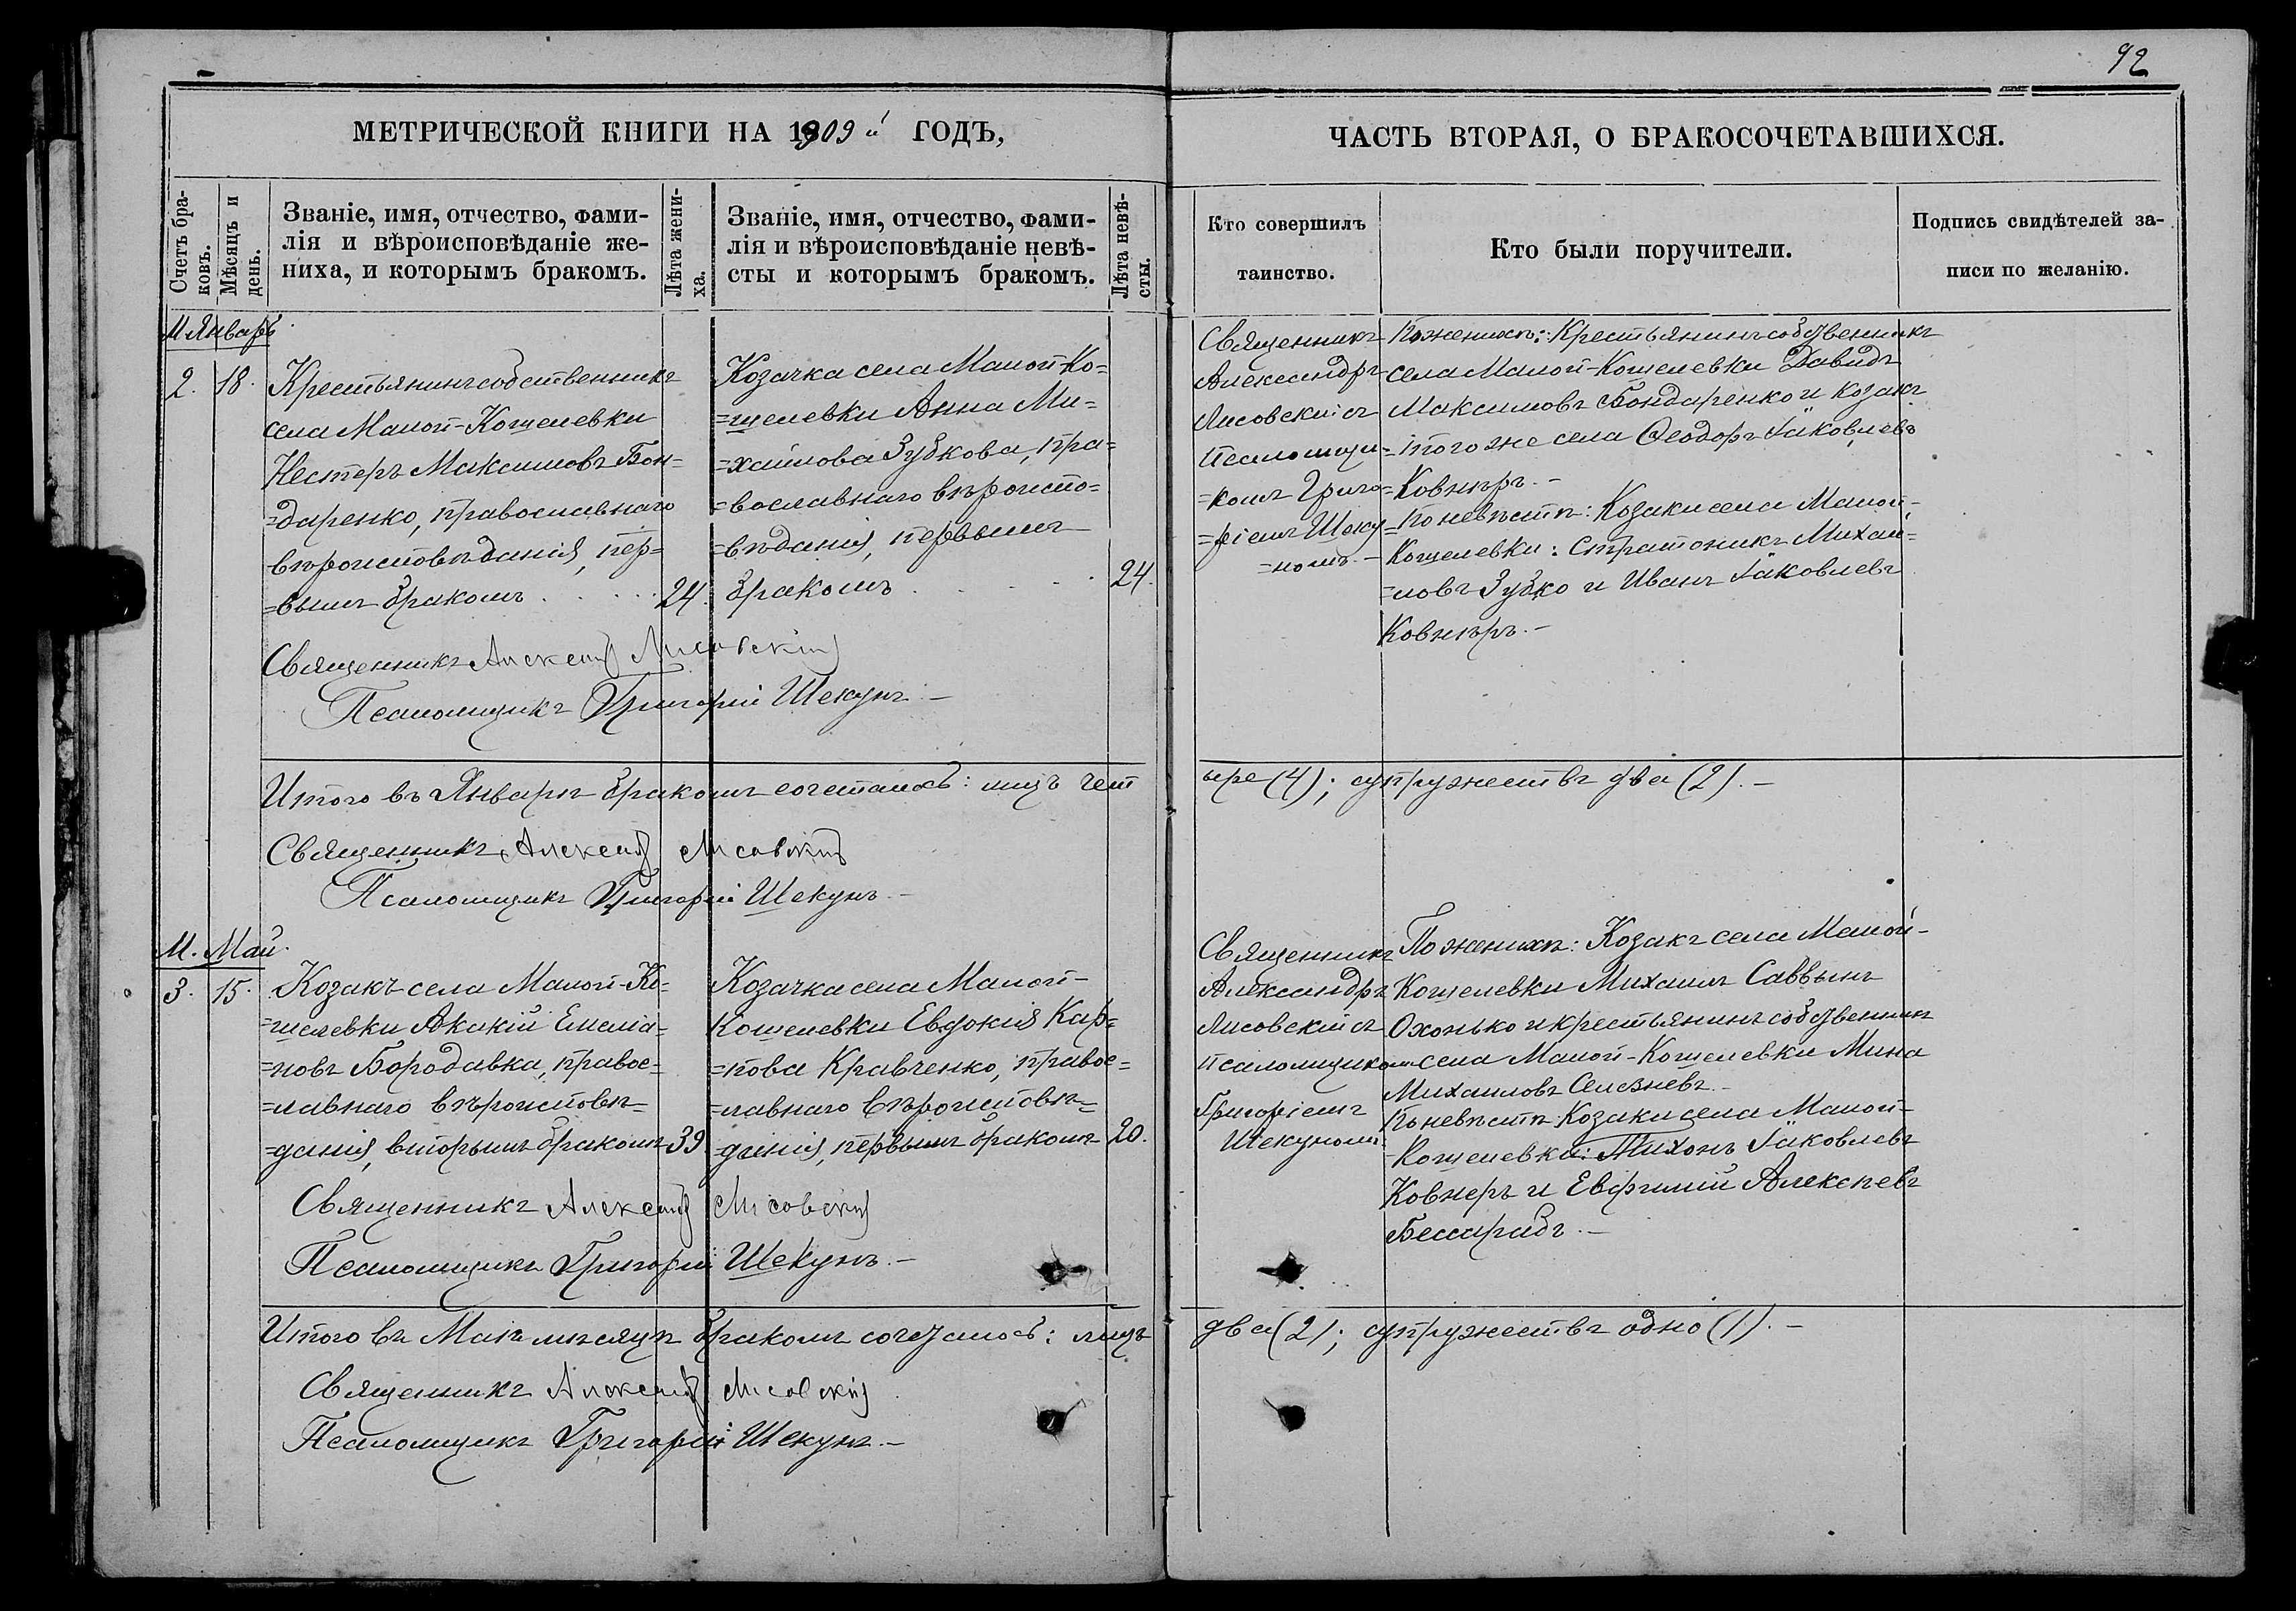 92
МЕТРИЧЕСКОЙ КНИГИ НА 1909й ГОДЪ,
ЧАСТЬ ВТОРАЯ, О БРАКОСОЧЕТАВШИХСЯ.
Счетъ бра-
ковъ.
Мѣсяцъ и
день.
Званіе, имя, отчество, фами-
лія и вѣроисповѣданіе же-
ниха, и которымъ бракомъ.
Лѣта жени-
ха.
Званіе, имя, отчество, фами-
лія и вѣроисповѣданіе невѣ-
сты и которымъ бракомъ.
Лѣта невѣ-
сты.
Кто совершилъ
таинство.
Кто были поручители.
Подпись свидѣтелей за-
писи по желанію.
М. Январь
2. 18.
Крестьянинъ собственникъ
села Малой-Кошелевки
Нестеръ Максимовъ Бон=
=даренко, православнаго
вѣроисповѣданія, пер=
=вымъ бракомъ . . . . 24.
Козачка села Малой-Ко=
=шелевки Анна Ми=
=хайлова Зубкова, пра=
=вославнаго вѣроиспо=
=вѣданія, первымъ
бракомъ . . . . 24.
Священникъ
Александръ
Лисовскій съ
Псаломщи=
=комъ Григо=
=ріемъ Шеку=
=номъ. –
По женихѣ: Крестьянинъ собственникъ
села Малой-Кошелевки Давидъ
Максимовъ Бондаренко и козакъ
того же села Ѳеодоръ Іаковлевъ
Ковнѣръ. –
По невѣстѣ: Козаки села Малой-
Кошелевки: Стратоникъ Михай=
=ловъ Зубко и Иванъ Іаковлевъ
Ковнѣръ. –
Священникъ Александръ Лисовскій
Псаломщикъ Григорій Шекунъ. –
Итого въ Январѣ бракомъ сочеталось: лицъ чет
ыре (4); супружествъ два (2). –
Священникъ Александръ Лисовскій
Псаломщикъ Григорій Шекунъ. –
М. Май.
3. 15.
Козакъ села Малой-Ко=
=шелевки Акакій Емеліа=
=новъ Бородавка, правос=
=лавнаго вѣроисповѣ=
=данія, вторымъ бракомъ 39.
Козачка села Малой-
Кошелевки Евдокія Кар=
=пова Кравченко, правос=
=лавнаго вѣроисповѣ=
=данія, первымъ бракомъ 20.
Священникъ
Александръ
Лисовскій съ
Псаломщикомъ
Григоріемъ
Шекуномъ
По женихѣ: Козакъ села Малой-
Кошелевки Михаилъ Саввинъ
Охонько и крестьянинъ собственникъ
села Малой-Кошелевки Мина
Михаиловъ Селезневъ. –
По невѣстѣ: Козаки села Малой-
Кошелевки: Тихонъ Іаковлевъ
Ковнеръ и Евфимій Алексѣевъ
Бессарабъ. –
Священникъ Александръ Лисовскій
Псаломщикъ Григорій Шекунъ. –
Итого въ Маѣ мѣсяцѣ бракомъ сочеталось: лицъ
два (2); супружествъ одно (1). –
Священникъ Александръ Лисовскій
Псаломщикъ Григорій Шекунъ. –